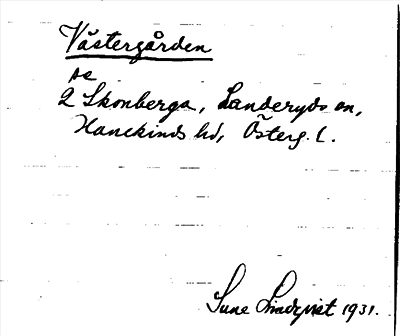 Västergården
se
2 Skonberga, Landeryds sn,
Hanekinds hd, Österg. l.
Sune Lindqvist 1931.